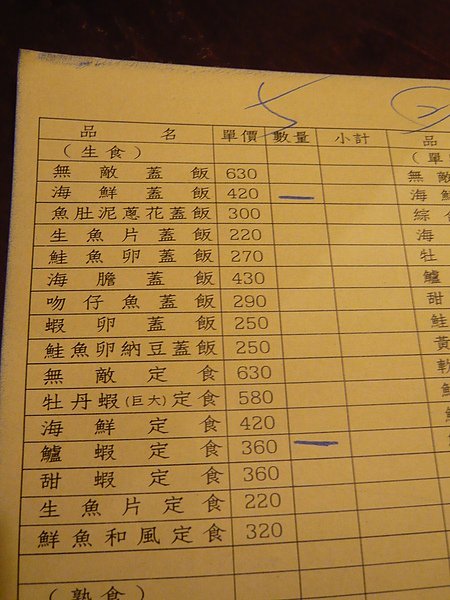 品名 單價 數量 小計 品
(生食) (單
無敵蓋飯 630 無敵
海鮮蓋飯 420 一 海鮮
魚肚泥蔥花蓋飯 300 綜食
生魚片蓋飯 220 海
鮭魚卵蓋飯 270 牡
海膽蓋飯 430 鱸
吻仔魚蓋飯 290 甜
蝦卵蓋飯 250 鮭
鮭魚卵納豆蓋飯 250 黃
無敵定食 630 軟
牡丹蝦(巨大)定食 580
海鮮定食 420
鱸蝦定食 360 一
甜蝦定食 360
生魚片定食 220
鮮魚和風定食 320
(熟食)